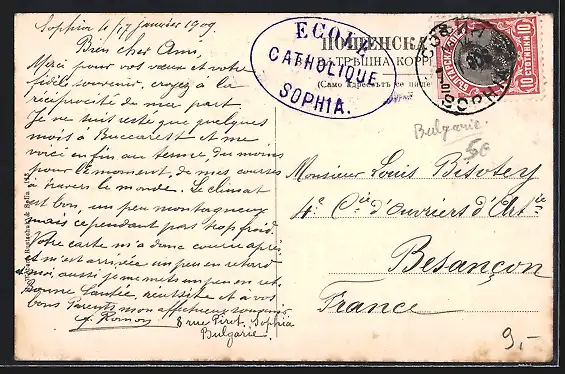 Sophia le 17 janvier 1909.
Bien cher Ami,
Merci pour vos vœux et votre
fidèle souvenir, croyez à la
réciprocité de ma part.
Je ne suis resté que quelques
mois à Buccarest et me
voici enfin au terme, du moins
pour le moment, de mes courses
à travers le monde. Le climat
est bon, un peu montagneux
mais cependant pas trop froid.
Votre carte m'a donc couru après
et m'est arrivée un peu en retard
moi, aussi je me mets un peu en ret.
Bonne Santée, réussite et à vos
bons Parents mon affectueux souvenir
8 rue Pirot, Sophia
Bulgarie.
ECOLE
CATHOLIQUE
SOPHIA.
ПОЩЕНСКА
(Само адресътъ се пише
10 СТОТИНКИ 10
Bulgarie
50
Monsieur Louis Bisotey
4e Cie d'Ouvriers d'Artie
Besançon
France
9,-